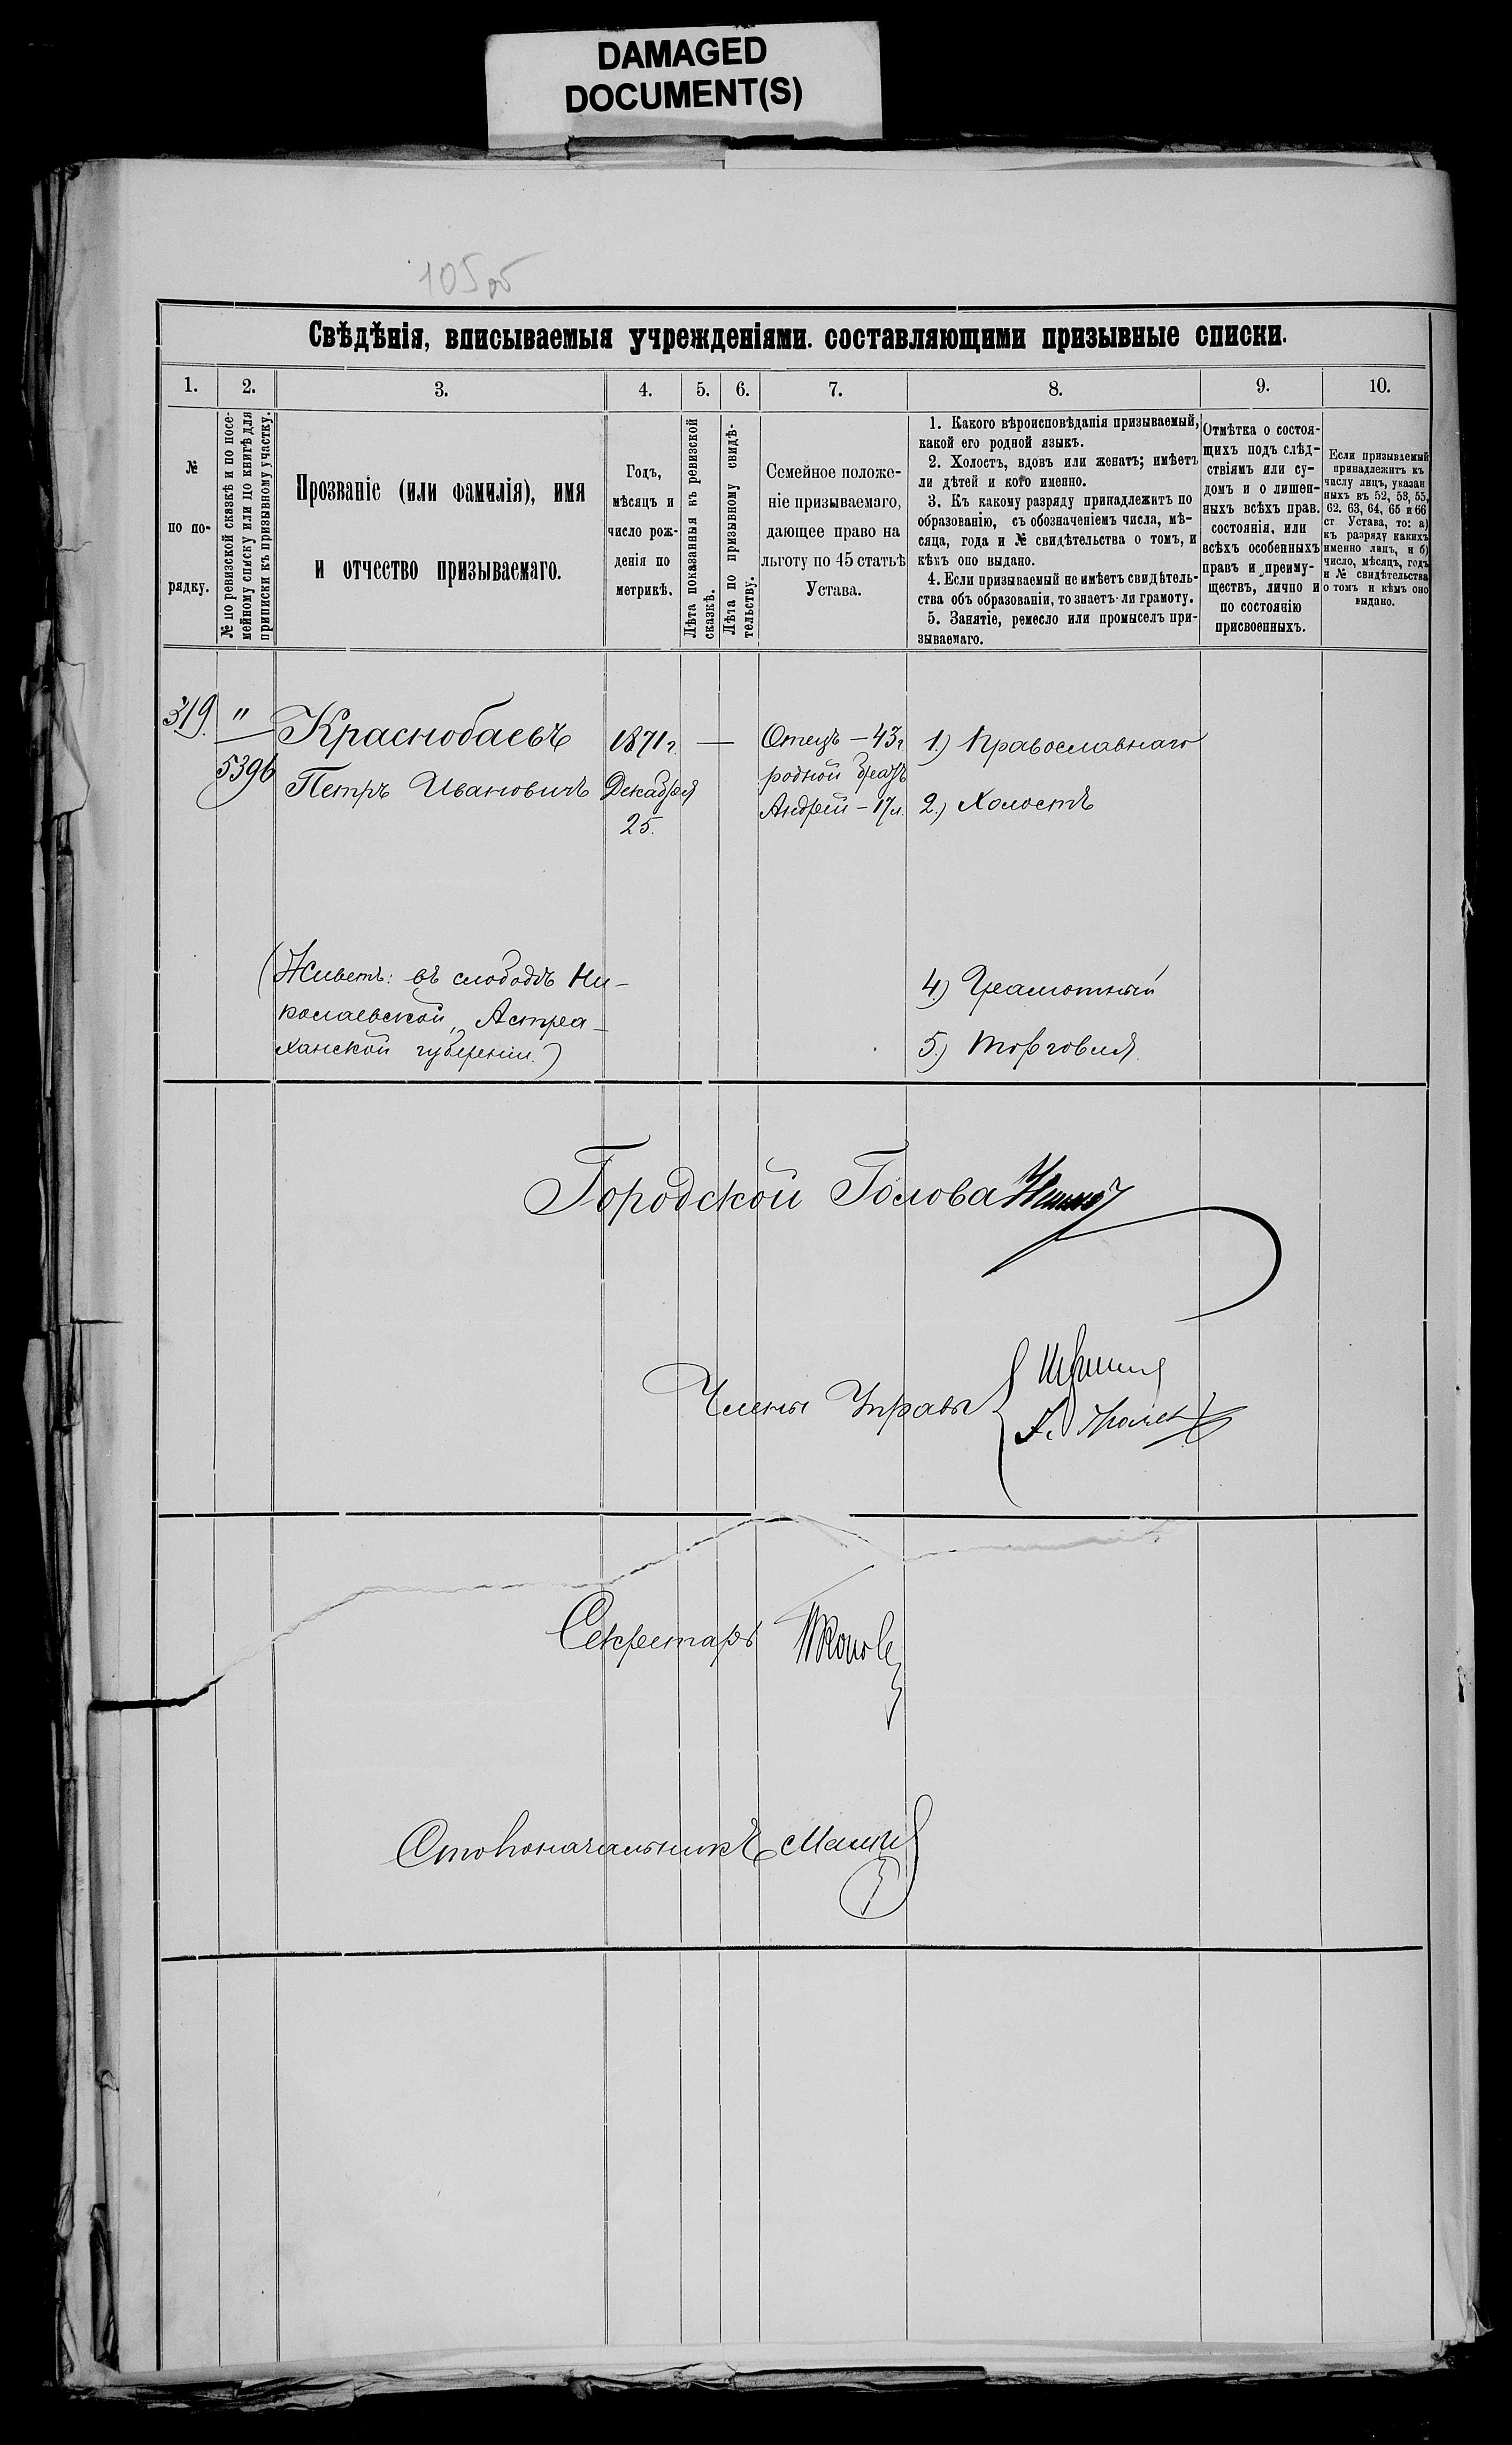 DAMAGED
DOCUMENT(S)
105 об
Свѣдѣнія, вписываемыя учрежденіями. составляющими призывные списки.
1. 2. 3. 4. 5. 6. 7. 8. 9. 10.
№
по по-
рядку.
№ по ревизской сказкѣ и по посе-
мейному списку или по книгѣ для
приписки къ призывному участку.
Прозваніе (или фамилія), имя
и отчество призываемаго.
Годъ,
мѣсяцъ и
число рож-
денія по
метрикѣ.
Лѣта показанныя къ ревизской
сказкѣ.
Лѣта по призывному свидѣ-
тельству.
Семейное положе-
ніе призываемаго,
дающее право на
льготу по 45 статьѣ
Устава.
1. Какого вѣроисповѣданія призываемый,
какой его родной языкъ.
2. Холостъ, вдовъ или женатъ; имѣетъ
ли дѣтей и кого именно.
3. Къ какому разряду принадлежитъ по
образованію, съ обозначеніемъ числа, мѣ-
сяца, года и № свидѣтельства о томъ, и
кѣмъ оно выдано.
4. Если призываемый не имѣетъ свидѣтель-
ства объ образованіи, то знаетъ-ли грамоту.
5. Занятіе, ремесло или промыселъ при-
зываемаго.
Отмѣтка о состоя-
щихъ подъ слѣд-
ствіямъ или су-
домъ и о лишен-
ныхъ всѣхъ прав.
состоянія, или
всѣхъ особенныхъ
правъ и преиму-
ществъ, лично и
по состоянію
присвоенныхъ.
Если призываемый
принадлежитъ къ
числу лицъ, указан
ныхъ въ 52, 53, 55,
62. 63, 64, 65 и 66
ст Устава, то: а)
къ разряду какихъ
именно лицъ, и б)
число, мѣсяцъ, годъ
и № свидѣтельства
о томъ и кѣмъ оно
выдано.
319. " Краснобаевъ 1871 г. — Отецъ – 43 г. 1.) Православнаго
5396 Петръ Ивановичъ Декабря родной братъ
25. Андрей – 17 л. 2.) Холостъ
(Живетъ: въ слободѣ Ни-
колаевской, Астра-
ханской губерніи.)
4.) Грамотный
5.) Торговля.
Городской Голова
Члены Управы
Секретарь
Столоначальникъ